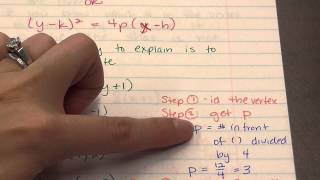 (y-k)² = 4p(x-h)
y to explain is to
te
y+1)
Step ① - id the vertex
Step ② get p
p = # in front
of () divided
by 4
p = 12/4 = 3